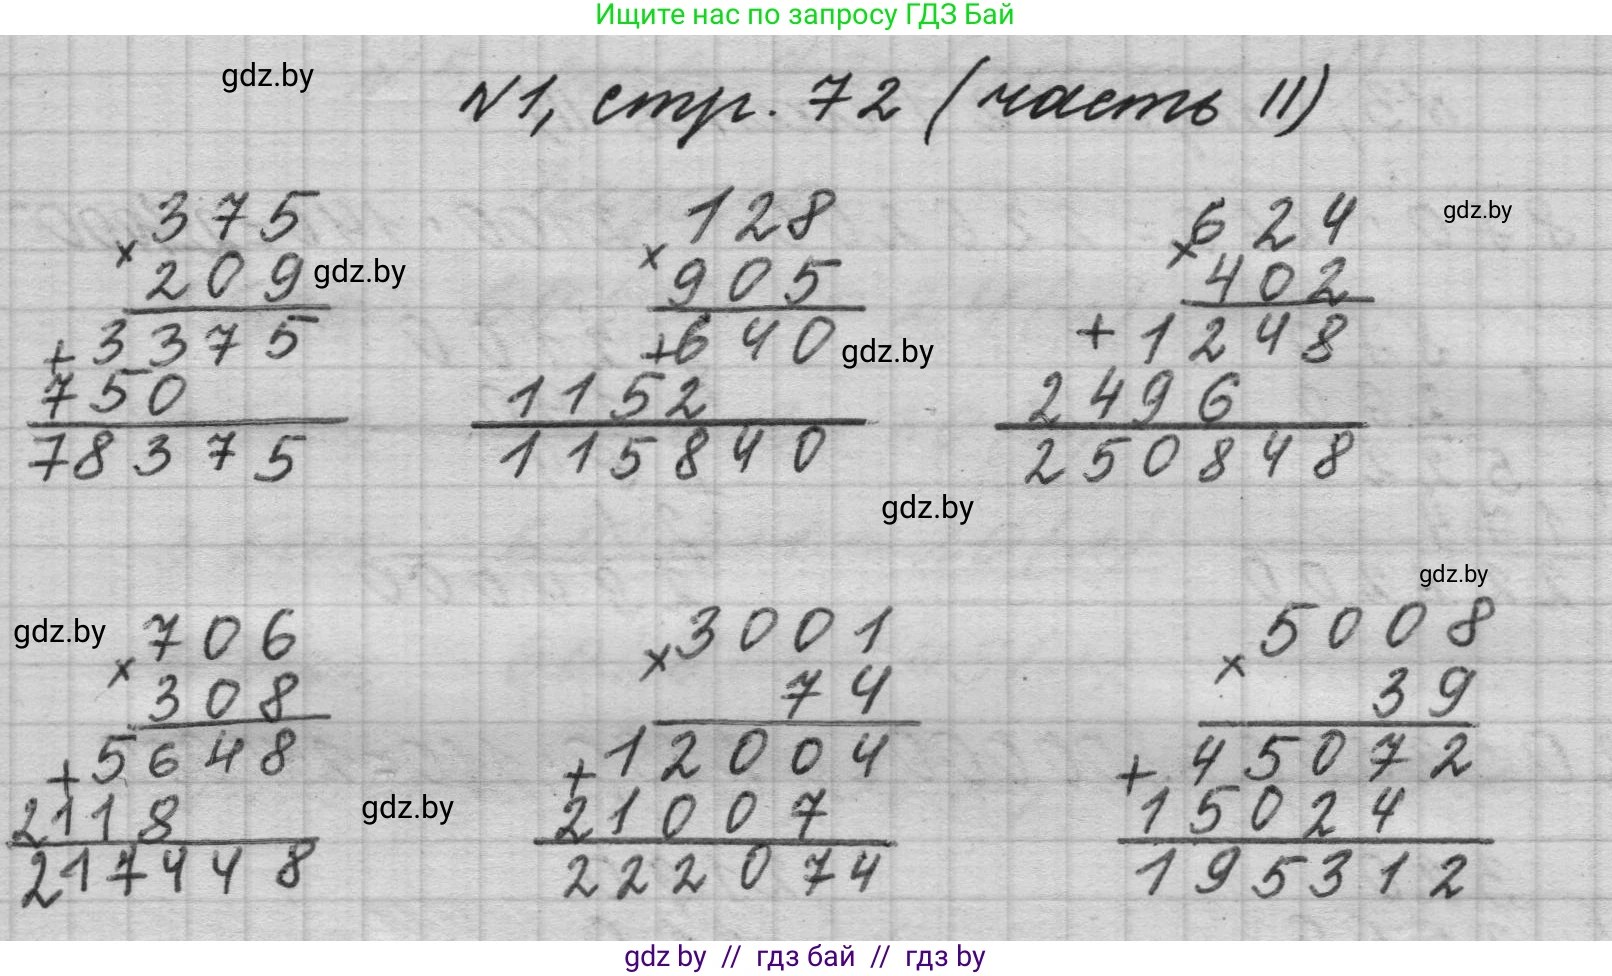 Ищите нас по запросу ГДЗ Бай
gdz.by
№1, стр. 72 (часть II)
375
× 209
gdz.by
+ 3375
750
78375
128
× 905
+ 640
gdz.by
1152
115840
gdz.by
624
× 402
+ 1248
2496
250848
gdz.by
gdz.by
gdz.by
706
× 308
+ 5648
2118
217448
gdz.by
3001
× 74
+ 12004
21007
222074
5008
× 39
+ 45072
15024
195312
gdz by // гдз бай // гдз by